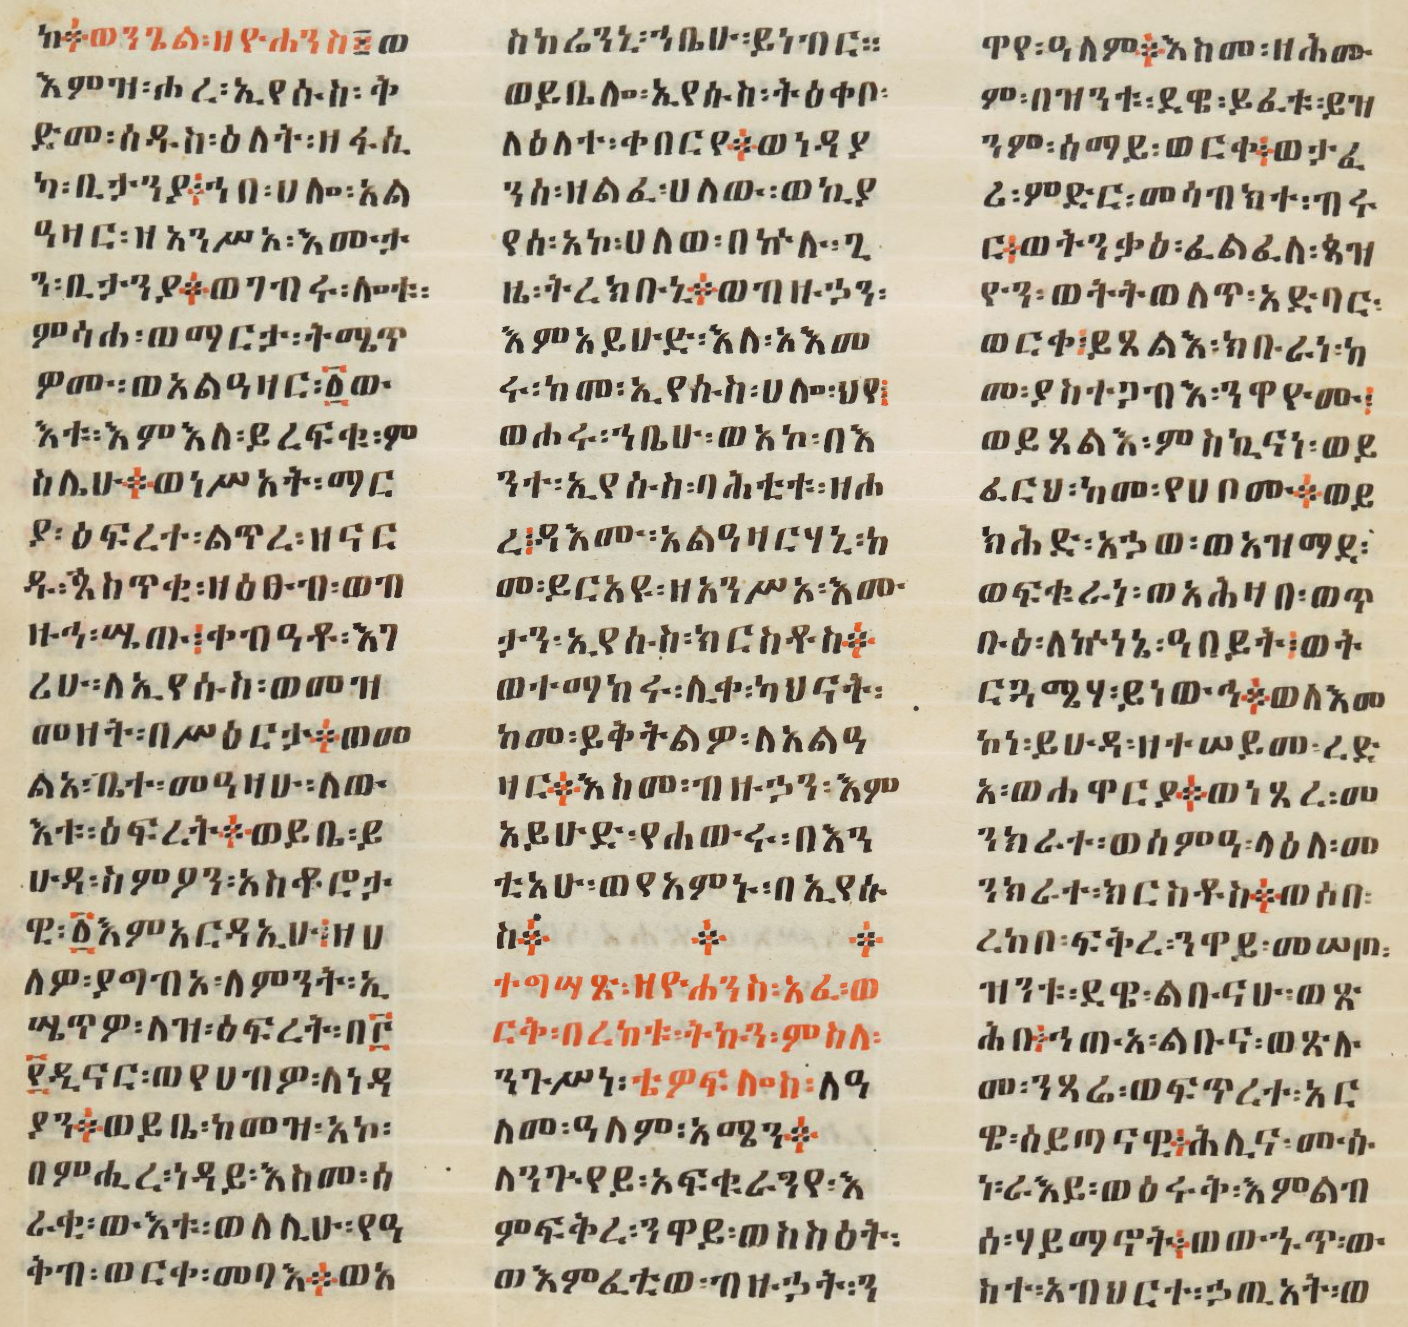 ከ፨ወንጌል፡ዘዮሐንስ፳ወ
እምዝ፡ሐረ፡ኢየሱስ፡ቅ
ድመ፡ሰዱስ፡ዕለት፡ዘፋሲ
ካ፡ቢታንያ፤ኀበ፡ሀሎ፡አል
ዓዛር፡ዘአንሥአ፡እሙታ
ን፡ቢታንያ፨ወገብሩ፡ሎቱ፡
ምሳሐ፡ወማርታ፡ትሜጥ
ዎሙ፡ወአልዓዛር፡፩ው
እቱ፡እምእለ፡ይረፍቁ፡ም
ስሌሁ፨ወነሥአት፡ማር
ያ፡ዕፍረተ፡ልጥረ፡ዘናር
ዱ፡ጲስጥቂ፡ዘዕፀብ፡ወብ
ዙኅ፡ሤጡ፤ቀብዓቶ፡እገ
ሪሁ፡ለኢየሱስ፡ወመዝ
መዘት፡በሥዕርታ፨ወመ
ልአ፡ቤተ፡መዓዛሁ፡ለው
እቱ፡ዕፍረት፨ወይቤ፡ይ
ሁዳ፡ስምዖን፡አስቆሮታ
ዊ፡፩እምአርዳኢሁ፤ዘሀ
ለዎ፡ያግብአ፡ለምንት፡ኢ
ሤጥዎ፡ለዝ፡ዕፍረት፡በ፫
፻ዲናር፡ወየሀብዎ፡ለነዳ
ያን፨ወይቤ፡ከመዝ፡አኮ፡
በምሒረ፡ነዳይ፡እስመ፡ሰ
ራቂ፡ውእቱ፡ወለሊሁ፡የዓ
ቅብ፡ወርቀ፡መባእ፨ወአ
ስከሬንኒ፡ኀቤሁ፡ይነብር።
ወይቤሎ፡ኢየሱስ፡ትዕቀቦ፡
ለዕለተ፡ቀበርየ፨ወነዳያ
ንሰ፡ዘልፈ፡ሀለው፡ወኪያ
የሰ፡አኮ፡ሀለወ፡በኵሉ፡ጊ
ዜ፡ትረክቡኒ፨ወብዙኃን፡
እምአይሁድ፡እለ፡አእመ
ሩ፡ከመ፡ኢየሱስ፡ሀሎ፡ህየ፤
ወሐሩ፡ኀቤሁ፡ወአኮ፡በእ
ንተ፡ኢየሱስ፡ባሕቲቱ፡ዘሐ
ረ፤ዳእሙ፡አልዓዛርሃኒ፡ከ
መ፡ይርአዩ፡ዘአንሥአ፡እሙ
ታን፡ኢየሱስ፡ክርስቶስ፨
ወተማከሩ፡ሊቀ፡ካህናት፡
ከመ፡ይቅትልዎ፡ለአልዓ
ዛር፨እስመ፡ብዙኃን፡እም
አይሁድ፡የሐውሩ፡በእን
ቲአሁ፡ወየአምኑ፡በኢየሱ
ስ፨ ፨ ፨
ተግሣጽ፡ዘዮሐንስ፡አፈ፡ወ
ርቅ፡በረከቱ፡ትኩን፡ምስለ፡
ንጉሥነ፡ቴዎፍሎስ፡ለዓ
ለመ፡ዓለም፡አሜን፨
ለንጕየይ፡አፍቁራንየ፡እ
ምፍቅረ፡ንዋይ፡ወከስዕት፡
ወእምፈቲወ፡ብዙኃት፡ን
ዋየ፡ዓለም፨እስመ፡ዘሕሙ
ም፡በዝንቱ፡ደዌ፡ይፈቱ፡ይዝ
ንም፡ሰማይ፡ወርቀ፤ወታፈ
ሪ፡ምድር፡መሳብክተ፡ብሩ
ር፤ወትንቃዕ፡ፈልፈለ፡ጳዝ
ዮን፡ወትትወለጥ፡አድባር፡
ወርቀ፤ይጸልእ፡ክቡራነ፡ከ
መ፡ያስተጋብእ፡ንዋዮሙ፤
ወይጸልእ፡ምስኪናነ፡ወይ
ፈርህ፡ከመ፡የሀቦሙ፨ወይ
ክሕድ፡አኃወ፡ወአዝማደ፡
ወፍቁራነ፡ወአሕዛበ፡ወጥ
ቡዕ፡ለኵነኔ፡ዓበይት፤ወት
ርጓሜሃ፡ይነውኅ፨ወለእመ
ኮነ፡ይሁዳ፡ዘተሠይመ፡ረድ
አ፡ወሐዋርያ፨ወነጸረ፡መ
ንክራተ፡ወሰምዓ፡ላዕለ፡መ
ንክራተ፡ክርስቶስ፨ወሶበ፡
ረከበ፡ፍቅረ፡ንዋይ፡መሠጦ፡
ዝንቱ፡ደዌ፡ልቡናሁ፡ወጽ
ሕበ፤ኀጠአ፡ልቡና፡ወጽሉ
መ፡ንጻሬ፡ወፍጥረተ፡አር
ዌ፡ሰይጣናዊ፤ሕሊና፡ሙሱ
ነ፡ራእይ፡ወዕሩቅ፡እምልብ
ሰ፡ሃይማኖት፨ወውኅጥ፡ው
ስተ፡አብህርተ፡ኃጢአት፡ወ